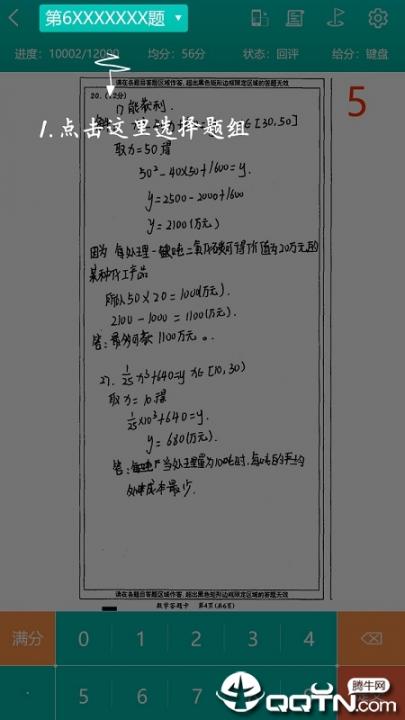 第6XXXXXXX题
进度：10002/12000
均分：56分
状态：回评
给分：键盘
请在各题目答题区域作答，超出黑色矩形边框限定区域的答题无效
5
20.（12分）
能获利．
[30,50]
1.点击这里选择题组
取x=50得
50²-40×50+1600=y.
y=2500-2000+1600
y=2100(万元)
因为 每处理一吨二氧化碳可得价值为20万元的
某种化工产品
所以50×20=1000(万元).
2100-1000=1100(万元).
答：最多可获1100万元。
1/25 x³+640=y x∈[10,30)
取x=10得
1/25×10³+640=y.
y=680(万元).
答：当处理量为10吨时，每吨的平均
处理成本最少.
请在各题目答题区域作答，超出黑色矩形边框限定区域的答题无效
数学答题卡 第4页(共6页)
满分
0
1
2
3
4
5
6
7
腾牛网
QQTN.com